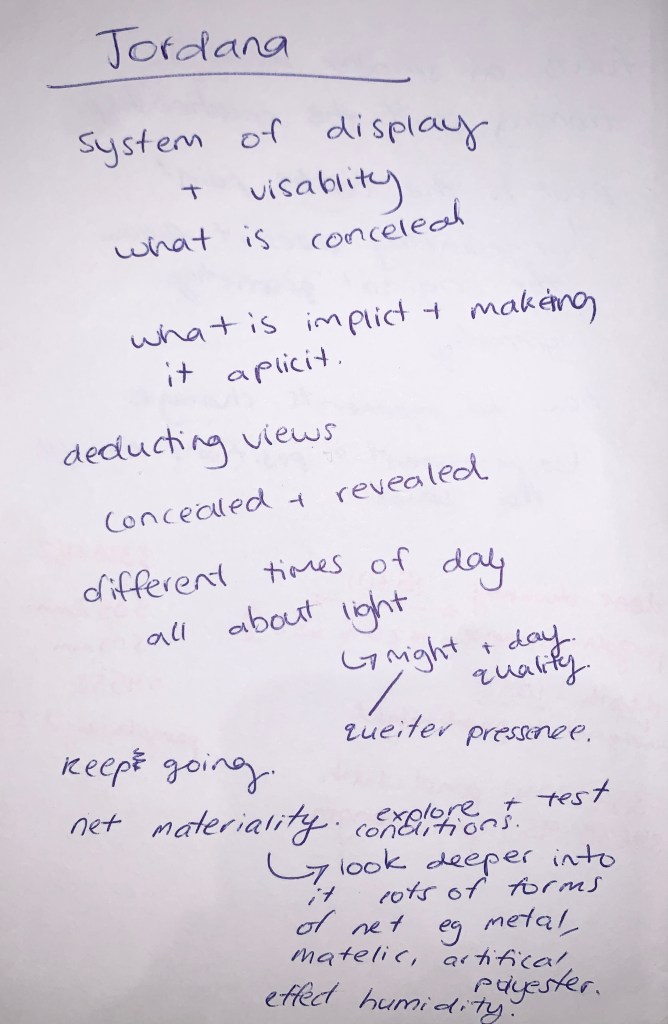 Jordana
system of display
+ visablity
what is conceleal
what is implict + makeing
it aplicit.
deducting views
concealed + revealed
different times of day
all about light
↳ night + day.
quality.
queiter pressence.
keep going.
net materiality. explore + test
conditions.
↳ look deeper into
it lots of forms
of net eg metal,
matelic, artifical
polyester.
effect humidity.